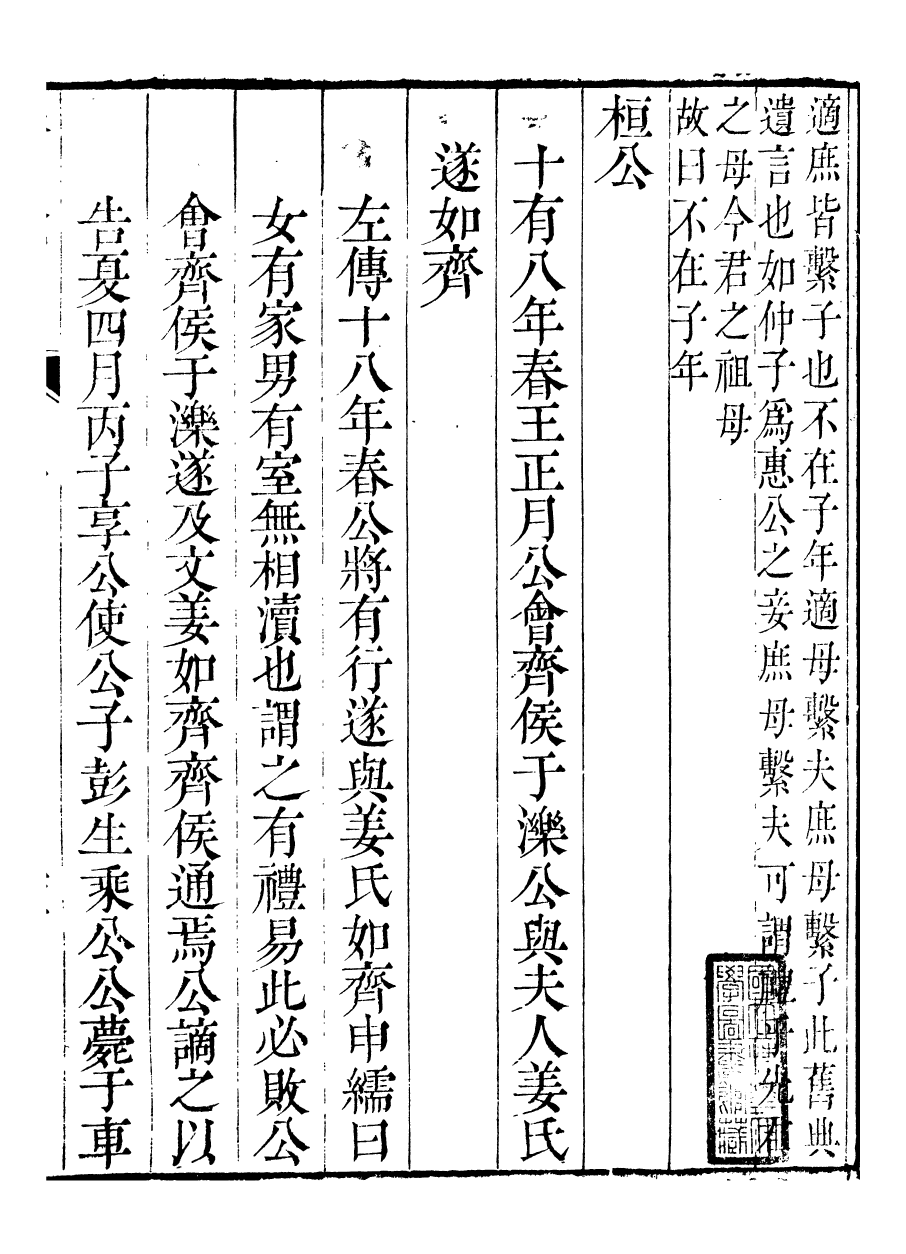 適庶皆繫子也不在子年適母繫夫庶母繫子此舊典
遺言也如仲子爲惠公之妾庶母繫夫可謂
之母今君之祖母
故曰不在子年
桓公
十有八年春王正月公會齊侯于濼公與夫人姜氏
遂如齊
左傳十八年春公將有行遂與姜氏如齊申繻曰
女有家男有室無相瀆也謂之有禮易此必敗公
會齊侯于濼遂及文姜如齊齊侯通焉公謫之以
告夏四月丙子享公使公子彭生乘公公薨于車